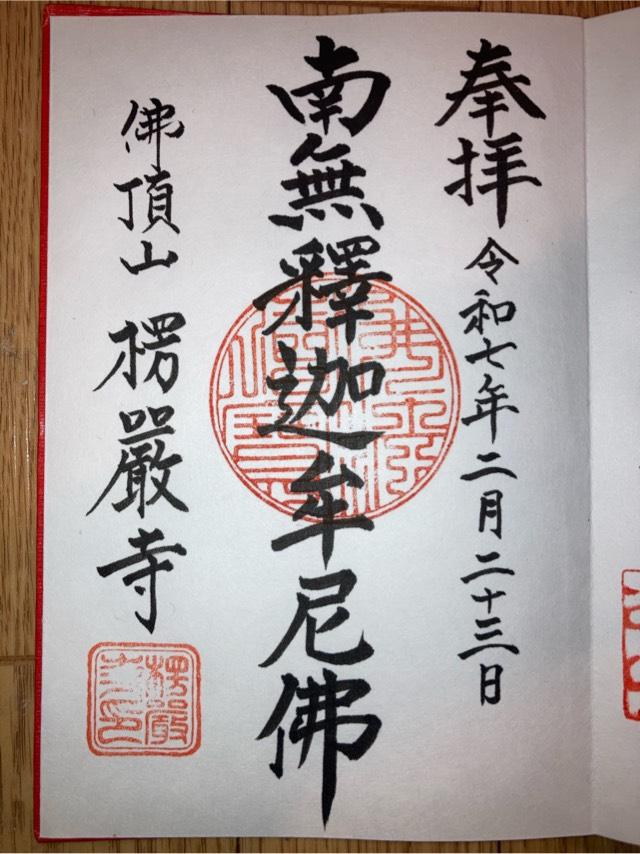 奉拝 令和七年二月二十三日
南無釋迦牟尼佛
佛頂山 楞嚴寺
楞嚴寺印